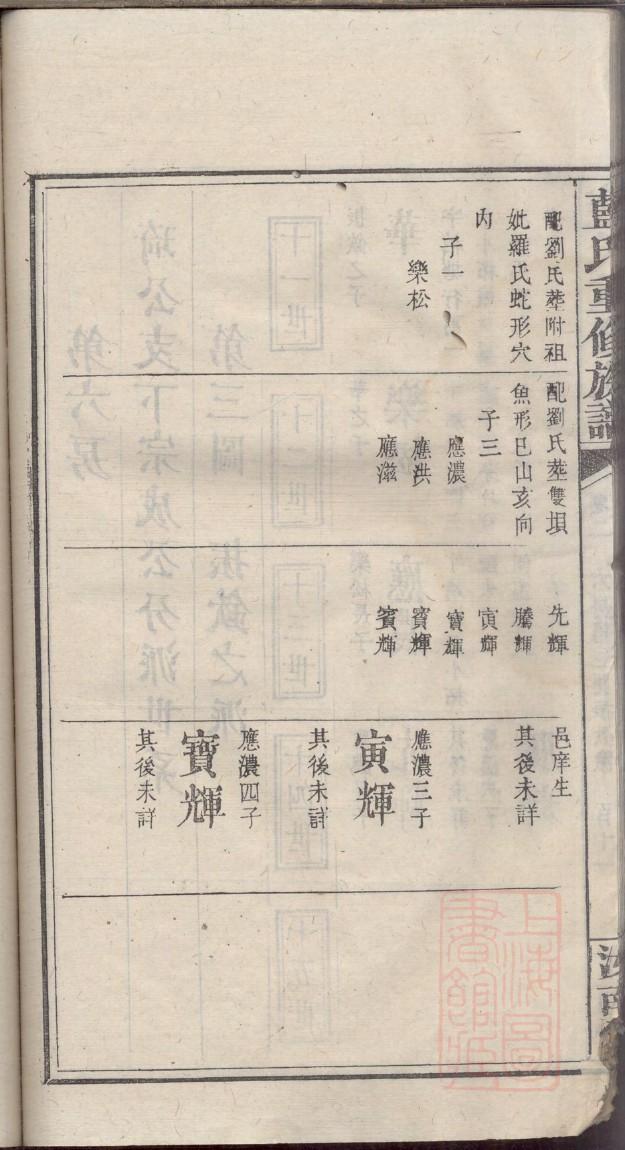 藍氏重修族譜
配劉氏塟附祖
妣羅氏蛇形穴
内
子一
樂松
配劉氏塟雙塤
魚形巳山亥向
子三
應濃
應洪
應滋
先輝
騰輝
寅輝
寶輝
賓輝
賓輝
邑庠生
其後未詳
應濃三子
寅輝
其後未詳
應濃四子
寶輝
其後未詳
上海圖
書館藏